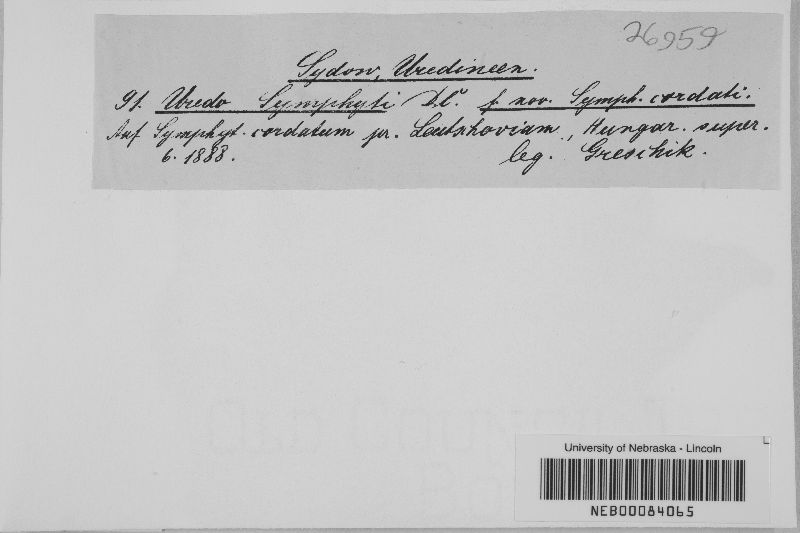 26959
Sydow, Uredineen.
91. Uredo Symphyti D.C. f. nov. Symph. cordati.
Auf Symphyt. cordatum pr. Leutschoviam, Hungar. super.
6. 1888. leg. Greschik.
University of Nebraska - Lincoln
NEB00084065